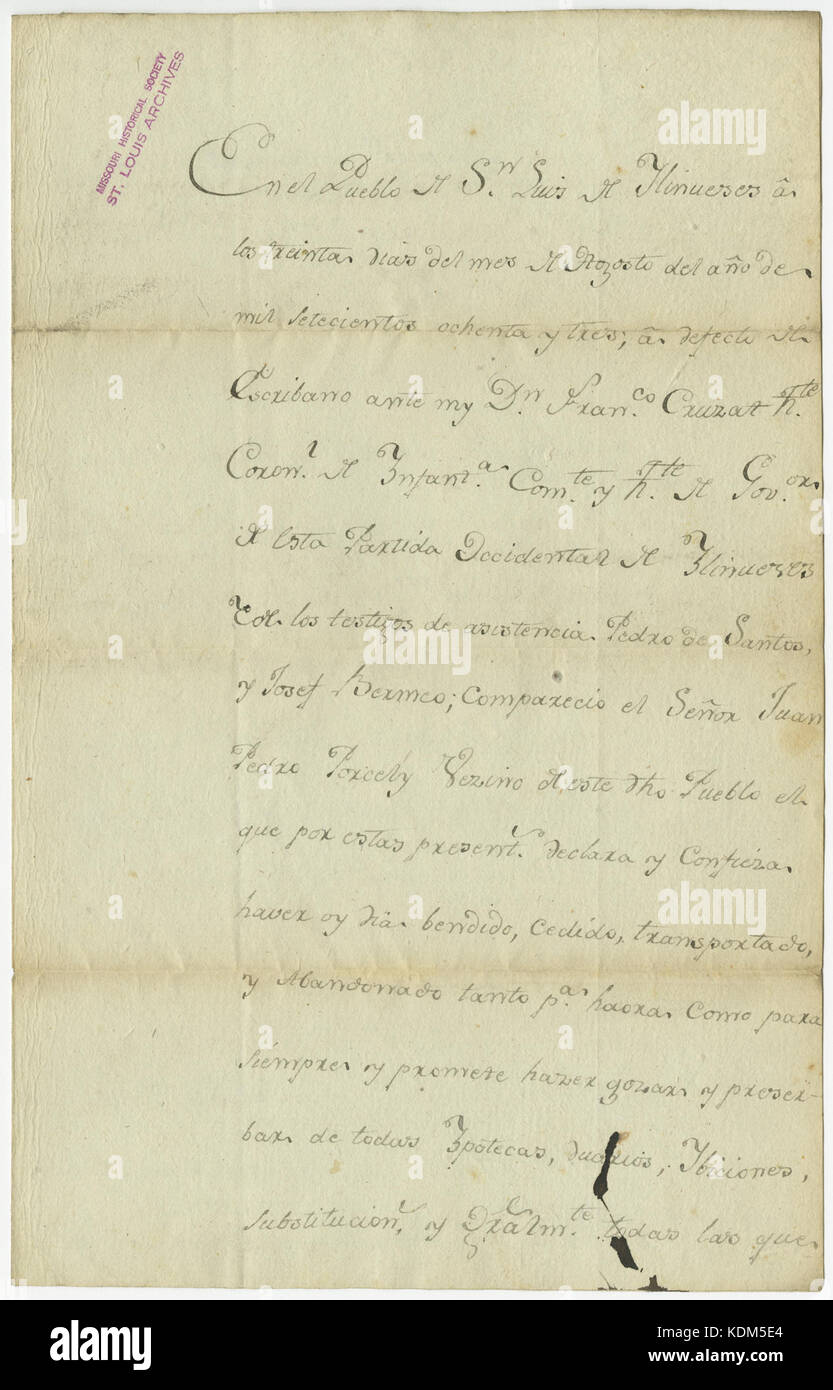 MISSOURI HISTORICAL SOCIETY
ST. LOUIS ARCHIVES
En el Pueblo de Sn. Luis de Ylinueses â
los treinta dias del mes de Agosto del año de
mil setecientos ochenta y tres; â defecto de
Escribano ante my Dn. Franco. Cruzat Thte.
Coronl. de Ynfanta. Comte. y Thte. de Govor.
de Esta Partida Occidental de Ylinueses
los testigos de asistencia Pedro de Santos,
y Josef Bermeo; comparecio el Señor Juan
Pedro Porcely Vezino de este dho Pueblo el
que por estas present. declara y Confieza
haver oy dia bendido, Cedido, transportado,
y Abandonado tanto pa. haora Como para
siempre y promete hazer gozar y preser-
bar de todas Ypotecas, Ybiciones,
substitucion. y todas las que
alamy stock photo
alamy
Image ID: KDM5E4
www.alamy.com